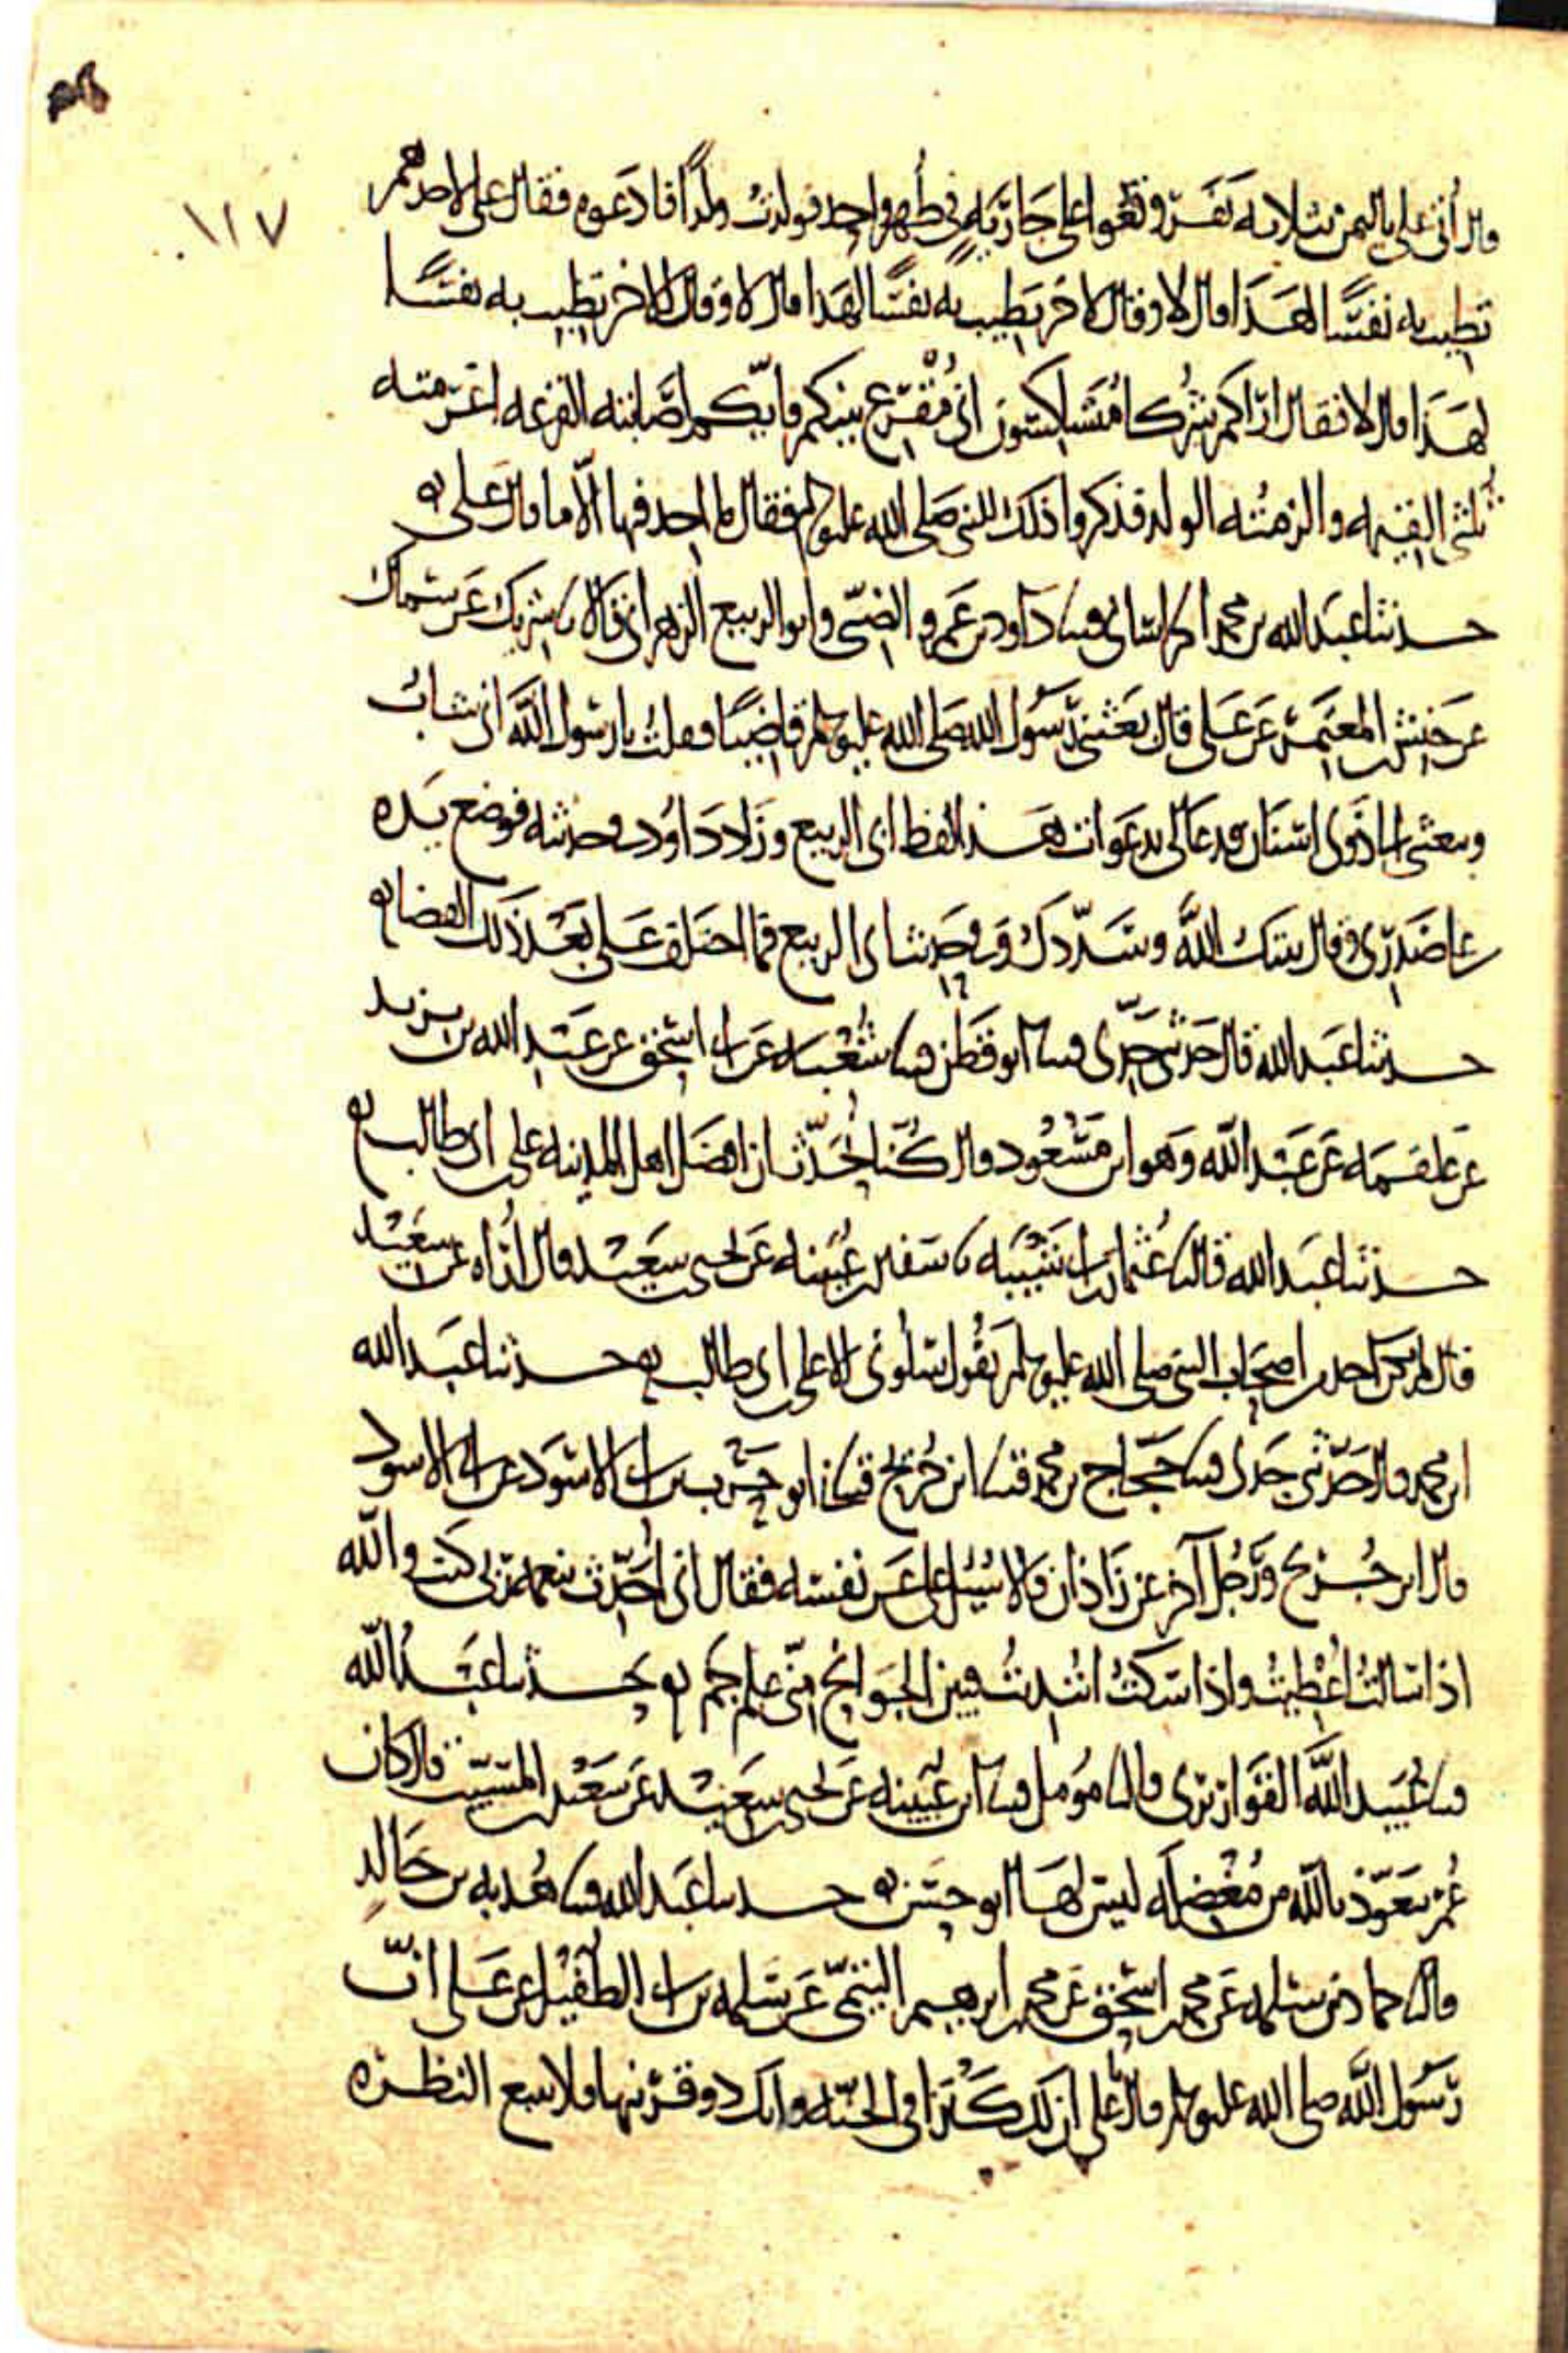 ١١٧
قال أتى علي باليمن بثلاثة نفر وقعوا على جارية في طهر واحد فولدت ولدا فادعوه فقال علي لاحدهم
تطيب به نفسا لهذا قال لا وقال لاخر تطيب به نفسا لهذا قال لا وقال لاخر تطيب به نفسا
لهذا قال لا فقال اراكم شركا متشاكسون اني مقرع بينكم فايكم اصابته القرعه اغرمته
ثلثي القيمه والزمته الولد فذكروا ذلك للنبي صلى الله عليه وسلم فقال ما اجد فيها الا ما قال علي
حدثنا عبد الله بن محمد الخراساني قثنا داود بن عمرو الضبي وابو الربيع الزهراني قالا نا شريك عن سماك
عن حنش بن المعتمر عن علي قال بعثني رسول الله صلى الله عليه وسلم قاضيا فقلت يا رسول الله اني شاب
وتبعثني الى ذوي اسنان فدعا لي بدعوات هذا لفظ ابي الربيع وزاد داود في حديثه فوضع يده
على صدري وقال ثبتك الله وسددك وفي حديث ابي الربيع فما اختلف علي بعد ذلك القضا
حدثنا عبد الله قال حدثني جدي قثنا ابو قطن قثنا شعبه عن ابي اسحق عن عبد الله بن يزيد
عن علقمه عن عبد الله وهو ابن مسعود قال كنا نحدث ان افضل اهل المدينه علي بن ابي طالب
حدثنا عبد الله قال نا عثمان بن ابي شيبه نا سفين بن عيينه عن يحيى بن سعيد قال أراه عن سعيد
قال لم يكن احد من اصحاب النبي صلى الله عليه وسلم يقول سلوني الا علي بن ابي طالب حدثنا عبد الله
ابن محمد قال حدثني جدي قثنا حجاج بن محمد قثنا ابن جريج قثنا ابو حرب بن ابي الاسود عن ابي الاسود
قال ابن جريج ورجل آخر عن زاذان قالا سئل علي عن نفسه فقال اني احدث بنعمة ربي كنت والله
اذا سالت اعطيت واذا سكت ابتديت فبين الجوانح مني علم جم حدثنا عبد الله
قثنا عبيد الله القواريري قال نا مؤمل قثنا ابن عيينه عن يحيى بن سعيد عن سعيد بن المسيب قال كان
عمر يتعوذ بالله من معضلة ليس لها ابو حسن حدثنا عبد الله قثنا هدبه بن خالد
قال نا حماد بن سلمه عن محمد بن اسحق عن محمد بن ابرهيم التيمي عن سلمه بن ابي الطفيل عن علي ان
رسول الله صلى الله عليه وسلم قال يا علي ان لك كنزا في الجنه وانك ذو قرنيها فلا تتبع النظره